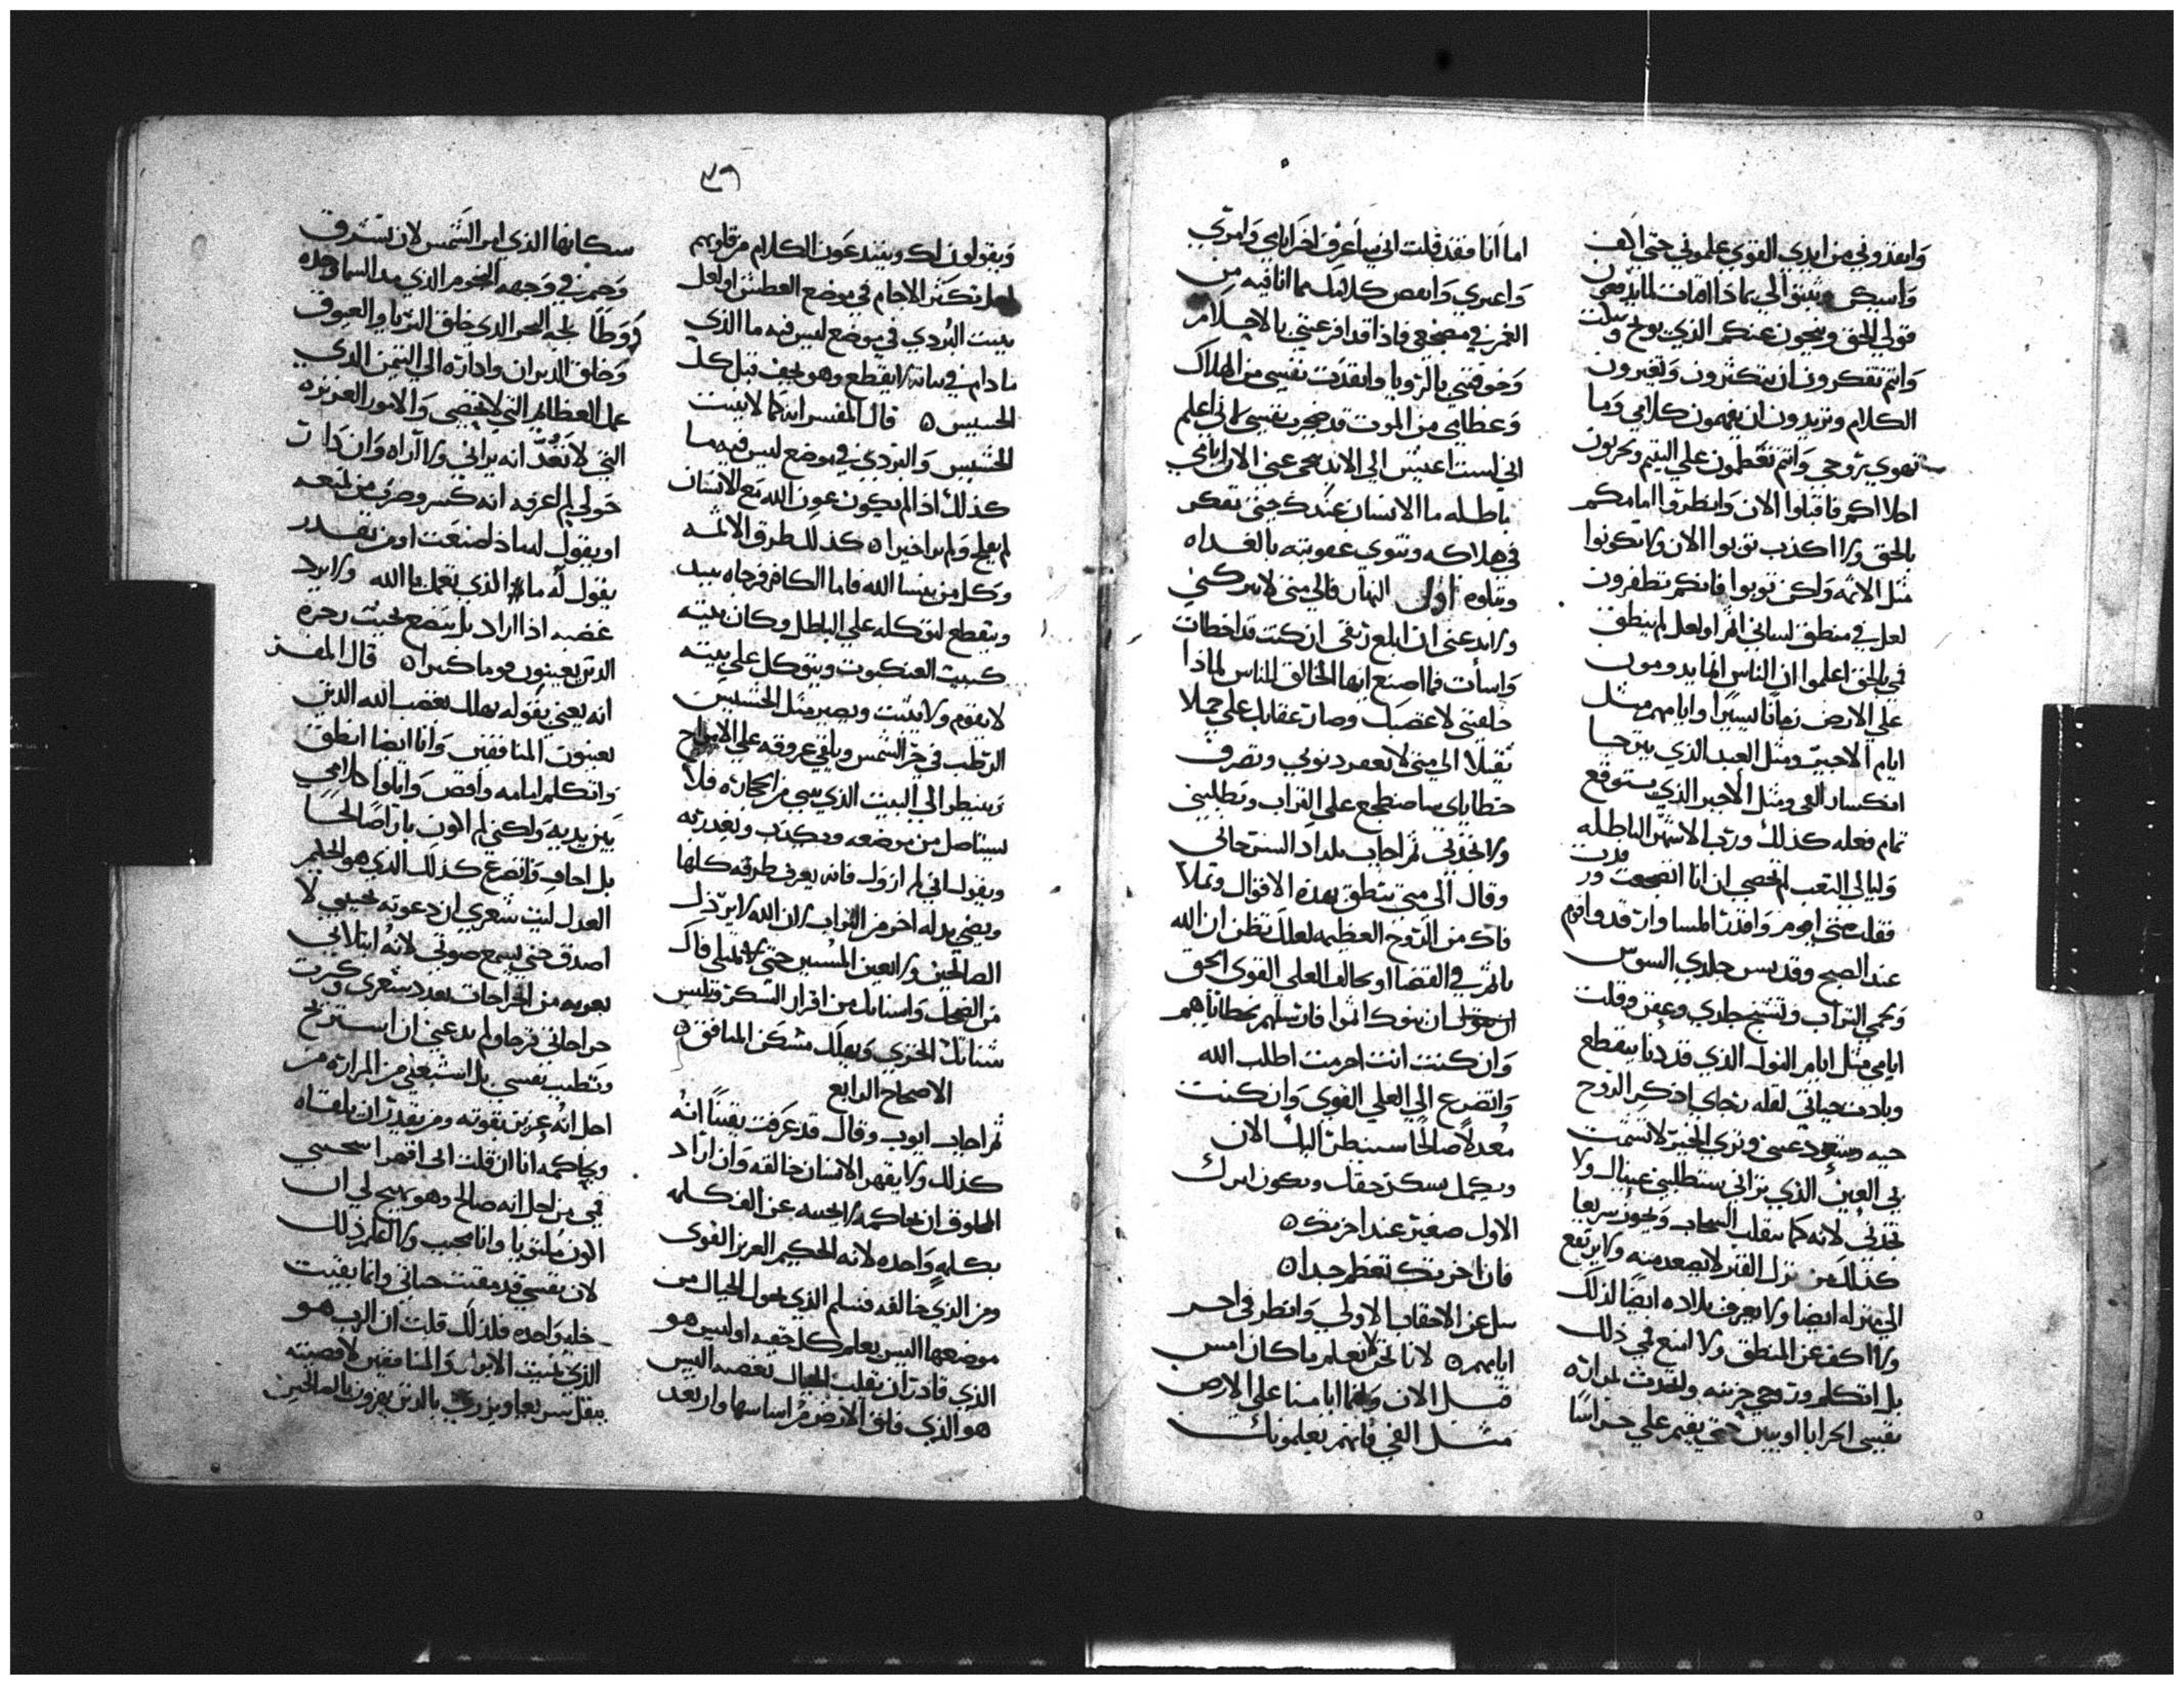 وانقدوني من ايدي القوي علموني حتى اكف
واسكن
قولي الحق
وانتم تفكرون ان وتغيرون
الكلام وتريدون ان يفهمون كلامي وما
تهوي روحي وانتم على اليتيم وتحزنون
اخلاكم فاقبلوا الان وانظروا امامكم
بالحق ولا اكذب توبوا الان ولا تكونوا
مثل الاثمه ولكن توبوا فانكم تظفرون
لعل في منطق لساني اثم او لعل لم ينطق
في بالحق اعلموا ان الناس انما يدومون
علي الارض زمانا يسيرا وايامهم مثل
ايام الاجير ومثل العبد الذي يترجا
انكسار الفي ومثل الاجير الذي يتوقع
تمام فعله كذلك ورثت الاشهر الباطله
وليالي التعب لم تحصي ان انا
فقلت متى اقوم
عند الصبح وقد لبس جلدي السوس
ويحمي التراب وتشنج جلدي وعفن وقلت
ايامي مثل ايام النول الذي قد دنا ينقطع
وبادت حياتي لقله رجاي اذكر الروح
حيه وتعود عيني وتري الخير لا تشمت
بي العين الذي تراني ستطلبني عيناك ولا
تجدني لانه كما ينقلب السحاب ويجوز سريعا
كذلك من نزل القبر لا يصعد منه ولا يرتفع
الي منزله ايضا ولا يعرف بلاده ايضا لذلك
ولا اكف عن المنطق ولا امنع في ذلك
بل اتكلم وروحي حزينه وتحدث لمراره
نفسي حتى يقيم علي حراسا
اما انا فقد قلت اني ساعرف اخر ايامي وامري
واعبري وانقص كلامك مما انا فيه من
الغم في مضجعي فاذا قد افزعتني بالاحلام
وخوفتني بالرويا وانقدت نفسي من الهلاك
وعظامي من الموت قد ضجرت نفسي لاني اعلم
اني لست اعيش الي الابد نحي عني الان ايامي
باطله ما الانسان عندك حتى تفكر
في هلاكه وتنوي عقوبته بالغداه
وتبلوه اول النهار فالي متى لا تتركني
ولا تدعني ان ابلع ريقي ان كنت قد اخطات
واسأت فما اصنع ايها الخالق للناس لماذا
خلقتني لاغضبك وصار عقابك علي حملا
ثقيلا الي متى لا تغفر دنوبي وتصرف
خطاياي ساضطجع علي التراب وتطلبني
ولا تجدني ثم اجاب بلداد السنوحاني
وقال الي متي تنطق بهذه الاقوال وتملا
فاك من الروح العظيمه لعلك تظن ان الله
ياثم في القضا او يخالف العلي القوي الحق
ان بنوك اثموا فارسلهم بخطاياهم
وان كنت انت اجرمت اطلب الله
واتضرع الي العلي القوي وان كنت
معدلا صالحا سينظر اليك الان
ويكمل مسكن حقك ويكون امرك
الاول صغير عند اخرتك
فان اخرتك تعظم جدا
سل عن الاحقاب الاولي وانظر في اخر
ايامهم لانا نحن لا نعلم ما كان امس
قبل الان وانما ايامنا علي الارض
مثل الفي فانهم يعلمونك
٣٦
ويقولون لك ويبتدعون الكلام من قلوبهم
لعل تكثر الاجام في موضع العطش او لعل
ينبت البردي في موضع ليس فيه ما الذي
ما دام في نباته لا ينقطع وهو يجف قبل كل
الحشيش قال المفسر انه كما لا ينبت
الحشيش والبردي في موضع ليس فيه ما
كذلك اذا لم يكون عون الله مع الانسان
لم يفلح ولم ير اخيرا كذلك طرق الاثمه
وكل من ينسا الله فاما الكافر فرجاه يبيد
وينقطع لتوكله علي الباطل وكان بيته
كبيت العنكبوت ويتوكل علي بيته
لا يقوم ولا يثبت ويصير مثل الحشيش
الرطب في حر الشمس ويلقي عروقه علي
وينظر الي البيت الذي يبني من الحجاره فلا
يستاصل من موضعه ويكذب ويعذر به
ويقول اني لم ازول فانه يعرف طرقه كلها
وينبت بدله اخر من التراب لان الله لا يرذل
الصالحين ولا يعين المسيين حتى تمتلي فاك
من الضحك واسنانك من اقرار الشكر وتلبس
شنانك الخزي ويهلك مسكن المنافق
الاصحاح الرابع
ثم اجاب ايوب وقال قد عرفت يقينا انه
كذلك ولا يقهر الانسان خالقه وان اراد
المخلوق ان يحاكمه لا يجيبه عن الف كلمه
بكلمه واحده لانه الحكيم العزيز القوي
ومن الذي خالفه فسلم الذي يحول الجبال من
موضعها اليس يعلم كل حقيه او ليس هو
الذي قادر ان يقلب الجبال بغضبه اليس
هو الذي فلق الارض من اساسها وارتعد
سكانها الذي امر الشمس لان تشرق
وختم في وجهه النجوم الذي مد السما وحده
ووطا لجه البحر الذي خلق الثريا والعيوق
وخلق الدبران واداره الي التيمن الذي
عمل العظايم التي لا تحصي والامور العزيزه
التي لا تعد انه يراني ولا اراه وان دات
حولي لم اعرفه انه كسر وصرف من يمنعه
او يقول له ماذا صنعت او من يقدر
يقول له ما الذي تعمل يا الله ولا يرد
غضبه اذا اراد بل يتضع تحت رجزه
الذين يعينون قوما كبرا قال المفسر
انه يعني بقوله يهلك بغضب الله الذين
يعينون المنافقين وانا ايضا انطق
واتكلم امامه واقص واتلوا كلامي
بين يديه ولكني لم اكون بارا صالحا
بل اخاف واتضرع كذلك الذي هو الحكم
العدل ليت شعري ان دعوته يجيبني لا
اصدق حتى يسمع صوتي لانه ابتلاني
بعويه من الجراحات بعدد شعري وكثرت
جراحاتي فرحا ولم يدعني ان استريح
وتطيب نفسي بل اشبعني من المراره من
اجل انه عزيز بقوته ومن يقدر ان يلقاه
ويحاكمه انا ان قلت اني اقهر اسحبني
فمي من اجل انه صالح وهو يهيج لي ان
اكون ملتويا وانا مجيب ولا اعلم ذلك
لان نفسي قد مقتت حياتي وانما بقيت
خله واحده فلذلك قلت ان الرب هو
الذي يميت الابرار والمنافقين لا قضيبه
يقتل سريعا ويزري بالذين يهزون بالصالحين